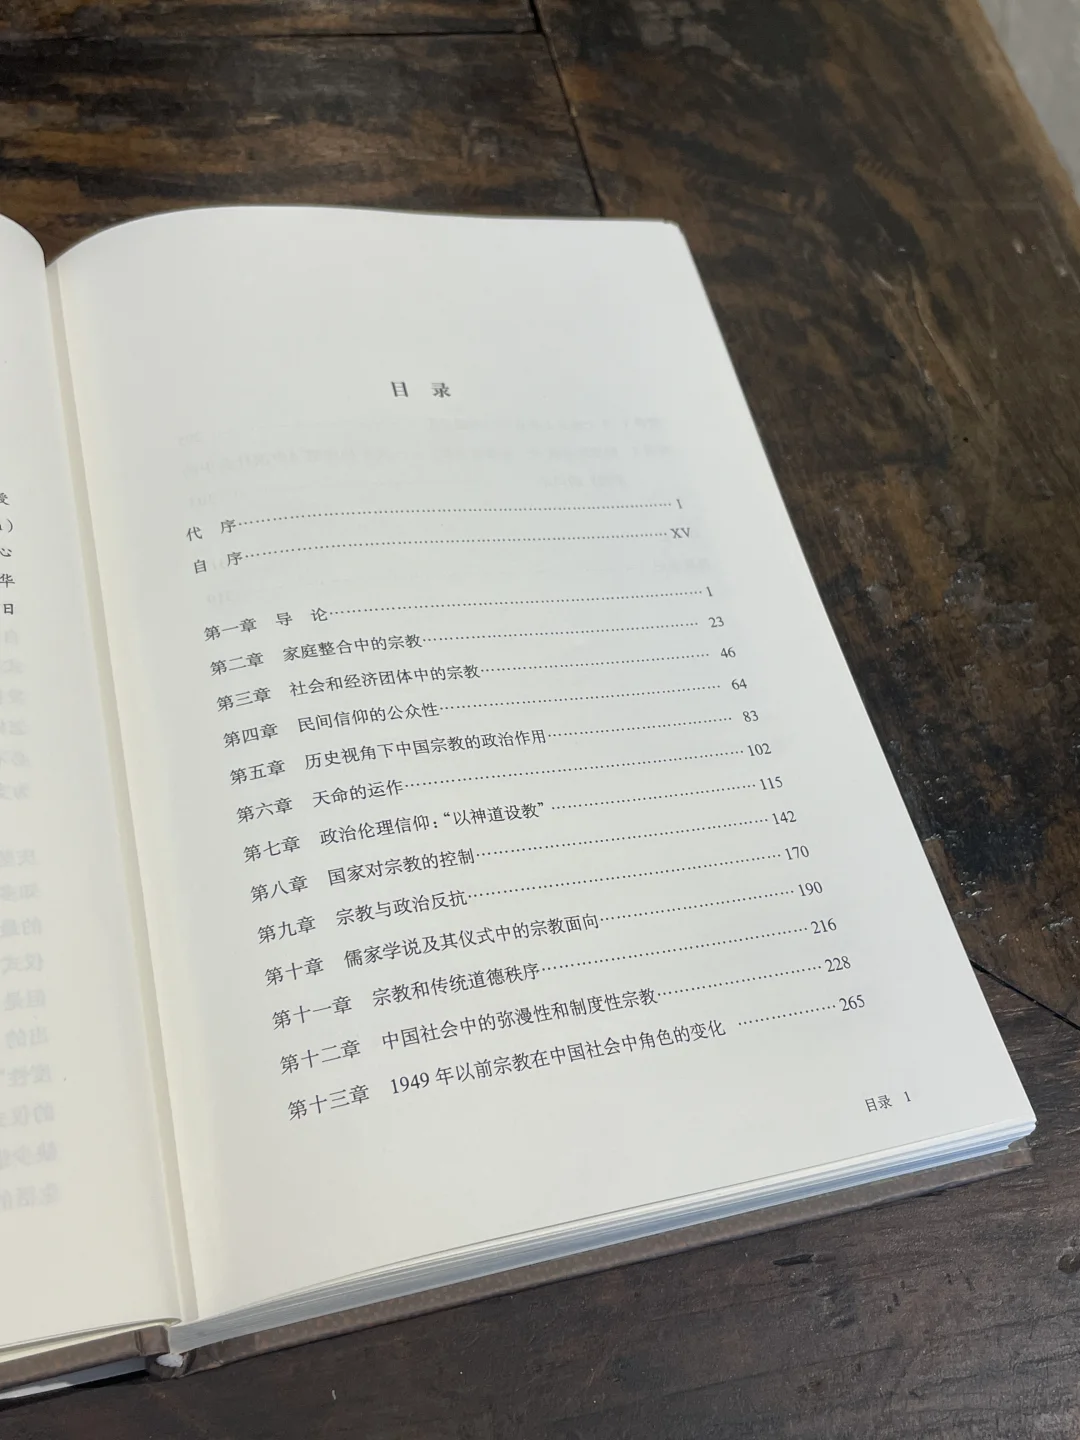 授
心
华
日
目 录
代 序……I
自 序……XV
第一章 导 论……1
第二章 家庭整合中的宗教……23
第三章 社会和经济团体中的宗教……46
第四章 民间信仰的公众性……64
第五章 历史视角下中国宗教的政治作用……83
第六章 天命的运作……102
第七章 政治伦理信仰：“以神道设教”……115
第八章 国家对宗教的控制……142
第九章 宗教与政治反抗……170
第十章 儒家学说及其仪式中的宗教面向……190
第十一章 宗教和传统道德秩序……216
第十二章 中国社会中的弥漫性和制度性宗教……228
第十三章 1949 年以前宗教在中国社会中角色的变化……265
目录 1